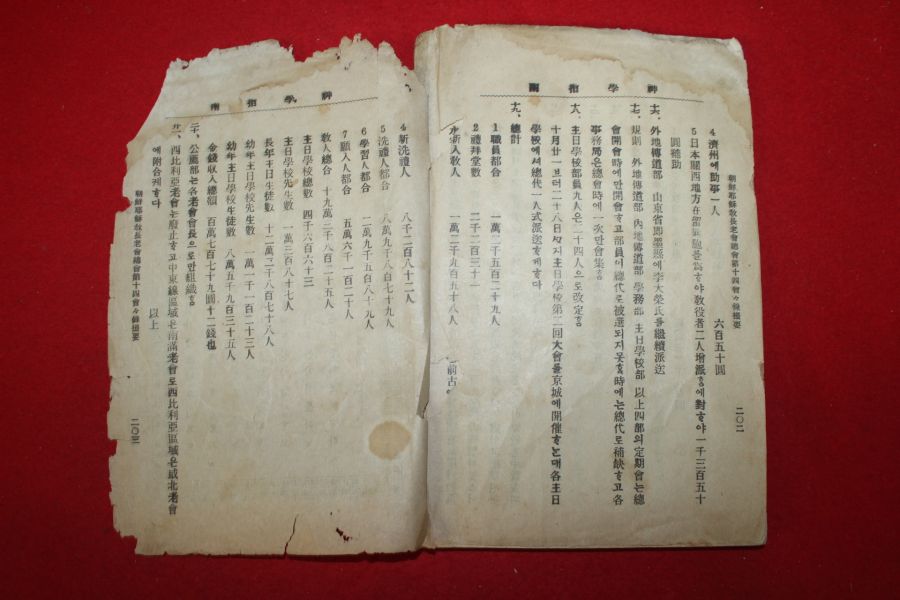 神學指南
朝鮮耶穌敎長老會總會第十四會々錄撮要
二〇二
4 濟州에助事一人 六百五十圓
5 日本關西地方在留 를爲ᄒᆞ야敎役者二人增派ᄒᆞᆷ에對ᄒᆞ야一千三百五十
圓補助
十六、外地傳道部 山東省卽墨縣에李大榮氏를繼續派送
十七、規則 外地傳道部 內地傳道部 學務部 主日學校部 以上四部의定期會는總
會開會時에만開會ᄒᆞ고部員이總代로被選되지못ᄒᆞᆯ時에는總代로補缺ᄒᆞ고各
事務局은總會時에一次만會集ᄒᆞᆷ
十八、主日學校部員九人은二十四人으로改定ᄒᆞᆷ
十月廿一브터二十八日ᄭᆞ지主日學校第二回大會를京城에開催ᄒᆞ는매各主日
學校에셔總代一人式派送ᄒᆞ게ᄒᆞ다
十九、總計
1 職員都合 一萬二千五百二十九人
2 禮拜堂數 二千二百三十一
新入敎人 一萬二千九百五十八人
前古
神學指南
4 新洗禮人 八千二百八十二人
5 洗禮人都合 八萬九千八百七十九人
6 學習人都合 二萬九千五百八十九人
7 願入人都合 五萬六千一百二十人
敎人總合 十九萬三千八百二十五人
主日學校總數 四千六百六十三
主日學校先生數 一萬三百八十七人
長年主日學生徒數 十二萬三千八百七十八人
幼年主日學校先生數 一萬一千一百二十三人
幼年主日學校生徒數 八萬五千九百三十五人
金錢收入總額 百萬七百七十九圓十二錢也
二十、公薦部는各老會會長으로만組織ᄒᆞᆷ
廿一、西比利亞老會는廢止ᄒᆞ고中東線區域은南滿老會로西比利亞區域은咸北老會
에附合케ᄒᆞ다
以上
朝鮮耶穌敎長老會總會第十四會々錄撮要
二〇三